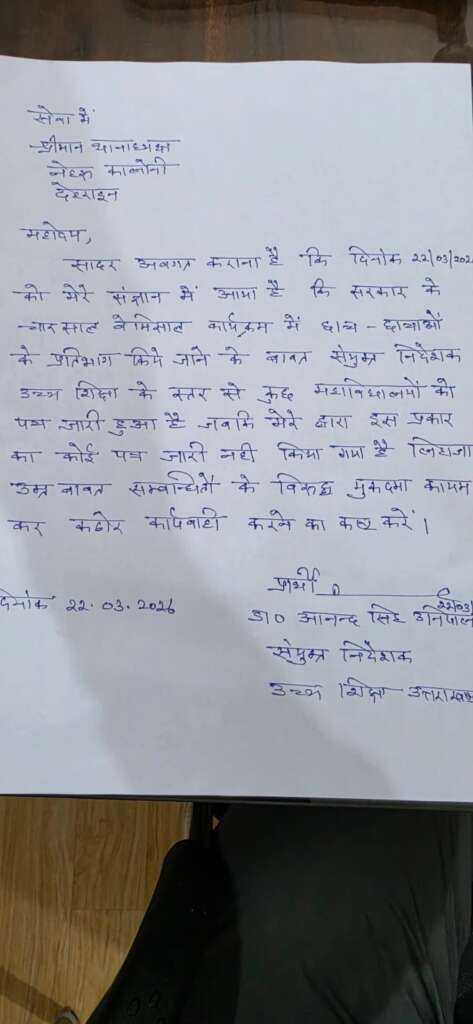 सेवा में
श्रीमान थानाध्यक्ष
नेहरु कालोनी
देहरादून
महोदय,
सादर अवगत कराना है कि दिनांक 22/03/202
को मेरे संज्ञान में आया है कि सरकार के
चार साल बेमिसाल कार्यक्रम में छात्र - छात्राओं
के प्रतिभाग किये जाने के बावत संयुक्त निदेशक
उच्च शिक्षा के स्तर से कुछ महाविद्यालयों को
पत्र जारी हुआ है जबकि मेरे द्वारा इस प्रकार
का कोई पत्र जारी नही किया गया है लिहाजा
उक्त बावत सम्बन्धितों के विरुद्ध मुकदमा कायम
कर कठोर कार्यवाही करने का कष्ट करें।
प्रार्थी
22/03/
दिनांक 22.03.2026
डा० आनन्द सिंह उनियाल
संयुक्त निदेशक
उच्च शिक्षा उत्तराखण्ड